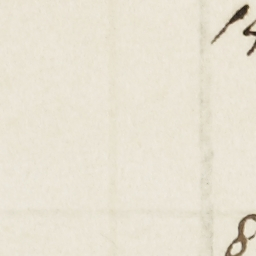 14
8